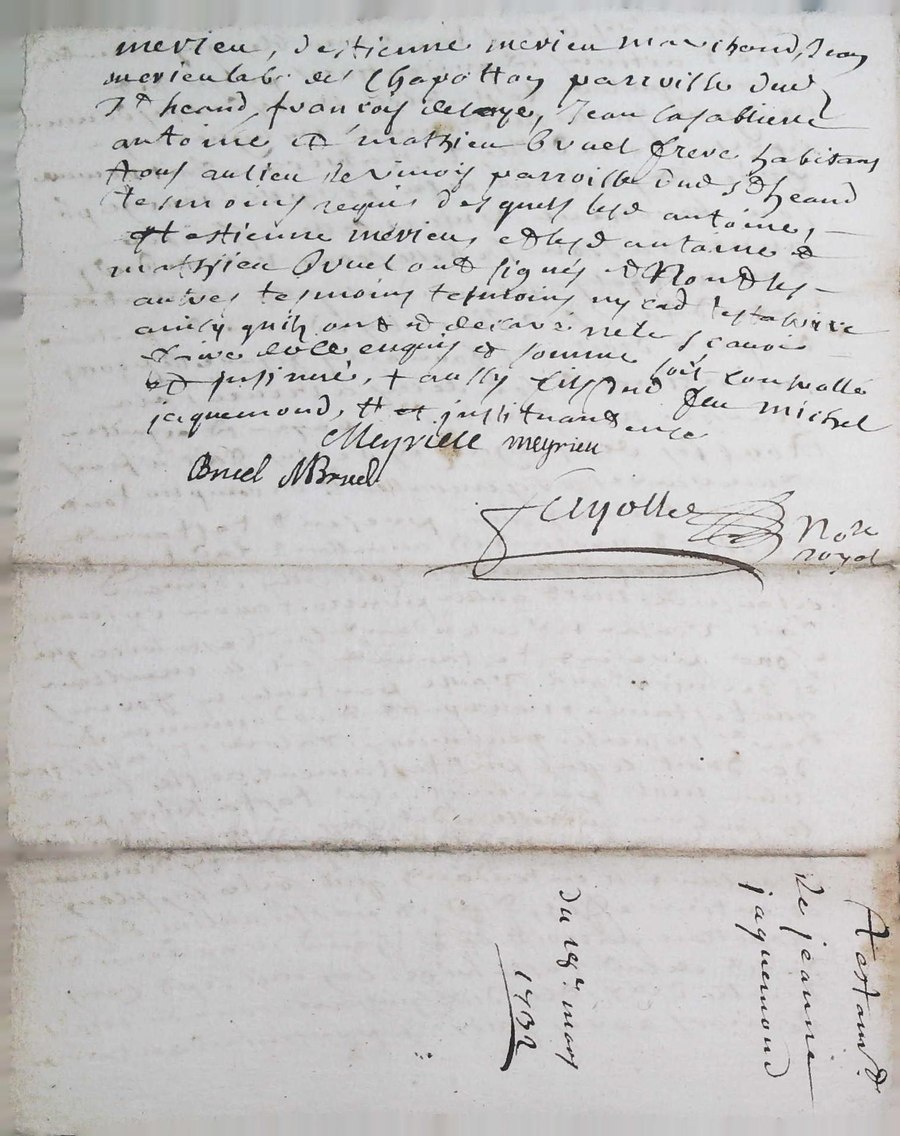 merieu, destienne merieu marchand, Jean
merieu lab. des Chapotton parroisse dud
St heand francois delaye, Jean lasabliere
antoine et mathieu bruel frere habitans
tous au lieu de vinoy parroisse dud st heand
tesmoins requis desquels lesd antoine,
et estienne merieu, et lesd antoine et
mathieu bruel ont signés et Non les
autres tesmoins ny lad testatrice
ainsy quilz ont declaré ne le scavoir
faire de ce enquis et sommé soit controllé
et insinué,
jacquemond, et instituant
Meyrieu meyrieu
Bruel MBruel
fayolle Nore
royal
Testamt
de jeanne
jaquemond
du 18e mars
1732